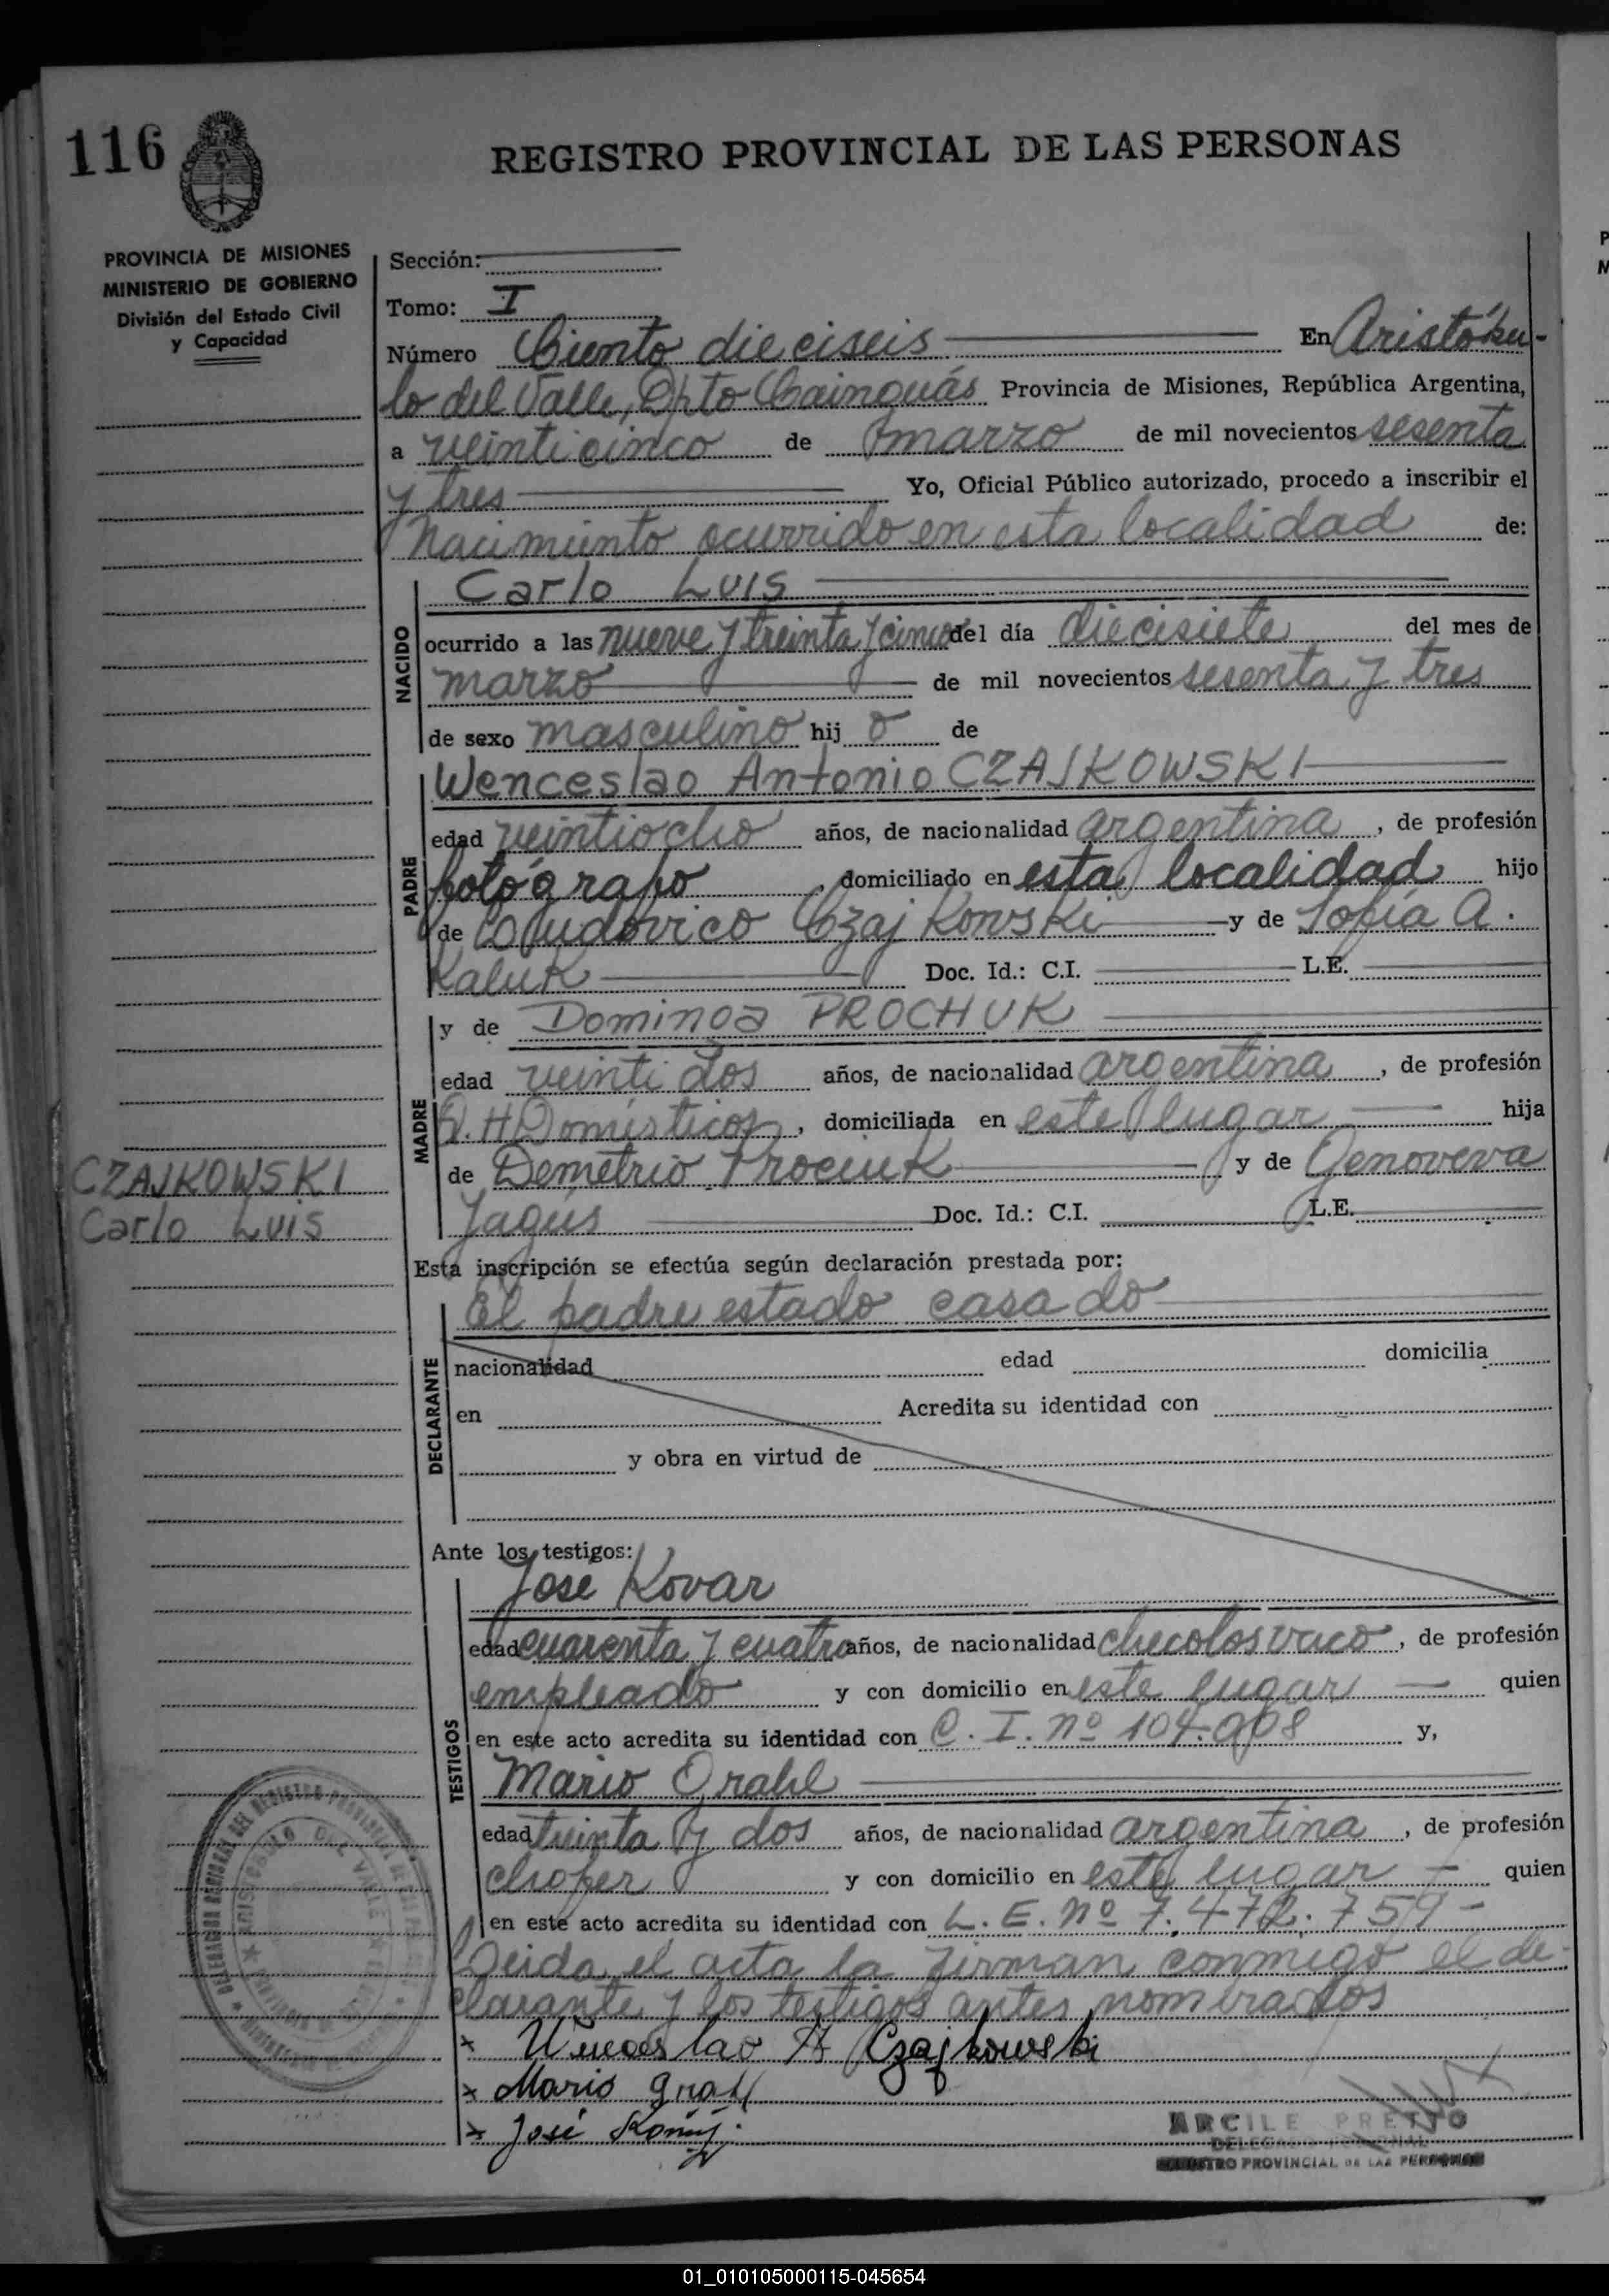 116
REGISTRO PROVINCIAL DE LAS PERSONAS
PROVINCIA DE MISIONES
MINISTERIO DE GOBIERNO
División del Estado Civil
y Capacidad
Sección:
Tomo: I
Número Ciento dieciseis En Aristóbu-
lo del Valle, Dpto Cainguás Provincia de Misiones, República Argentina,
a veinticinco de marzo de mil novecientos sesenta
y tres Yo, Oficial Público autorizado, procedo a inscribir el
Nacimiento ocurrido en esta localidad de:
NACIDO
Carlo Luis
ocurrido a las nueve y treinta y cinco del día diecisiete del mes de
marzo de mil novecientos sesenta y tres
de sexo masculino hij o de
PADRE
Wenceslao Antonio CZAJKOWSKI
edad veintiocho años, de nacionalidad argentina, de profesión
fotógrafo, domiciliado en esta localidad hijo
de Ludovico Czajkowski y de Sofía A.
Kaluk Doc. Id.: C.I. L.E.
MADRE
y de Dominga PROCHUK
edad veinti dos años, de nacionalidad argentina, de profesión
Q. H Domésticos, domiciliada en este lugar hija
de Demetrio Prociuk y de Genoveva
Jagus Doc. Id.: C.I. L.E.
CZAJKOWSKI
Carlo Luis
Esta inscripción se efectúa según declaración prestada por:
DECLARANTE
El padre estado casado
nacionalidad edad domicilia
en Acredita su identidad con
y obra en virtud de
Ante los testigos:
TESTIGOS
José Kovar
edad cuarenta y cuatro años, de nacionalidad checoloslovaco, de profesión
empleado y con domicilio en este lugar quien
en este acto acredita su identidad con C. I. Nº 104.908 y,
Mario Grahl
edad treinta y dos años, de nacionalidad argentina, de profesión
chofer y con domicilio en este lugar quien
en este acto acredita su identidad con L. E. Nº 7.472.759-
Leida el acta la firman conmigo el de-
clarante y los testigos antes nombrados
x Wenceslao A Czajkowski
x Mario Grahl
x José
ARCILE PRETTO
REGISTRO PROVINCIAL DE LAS PERSONAS
01_010105000115-045654